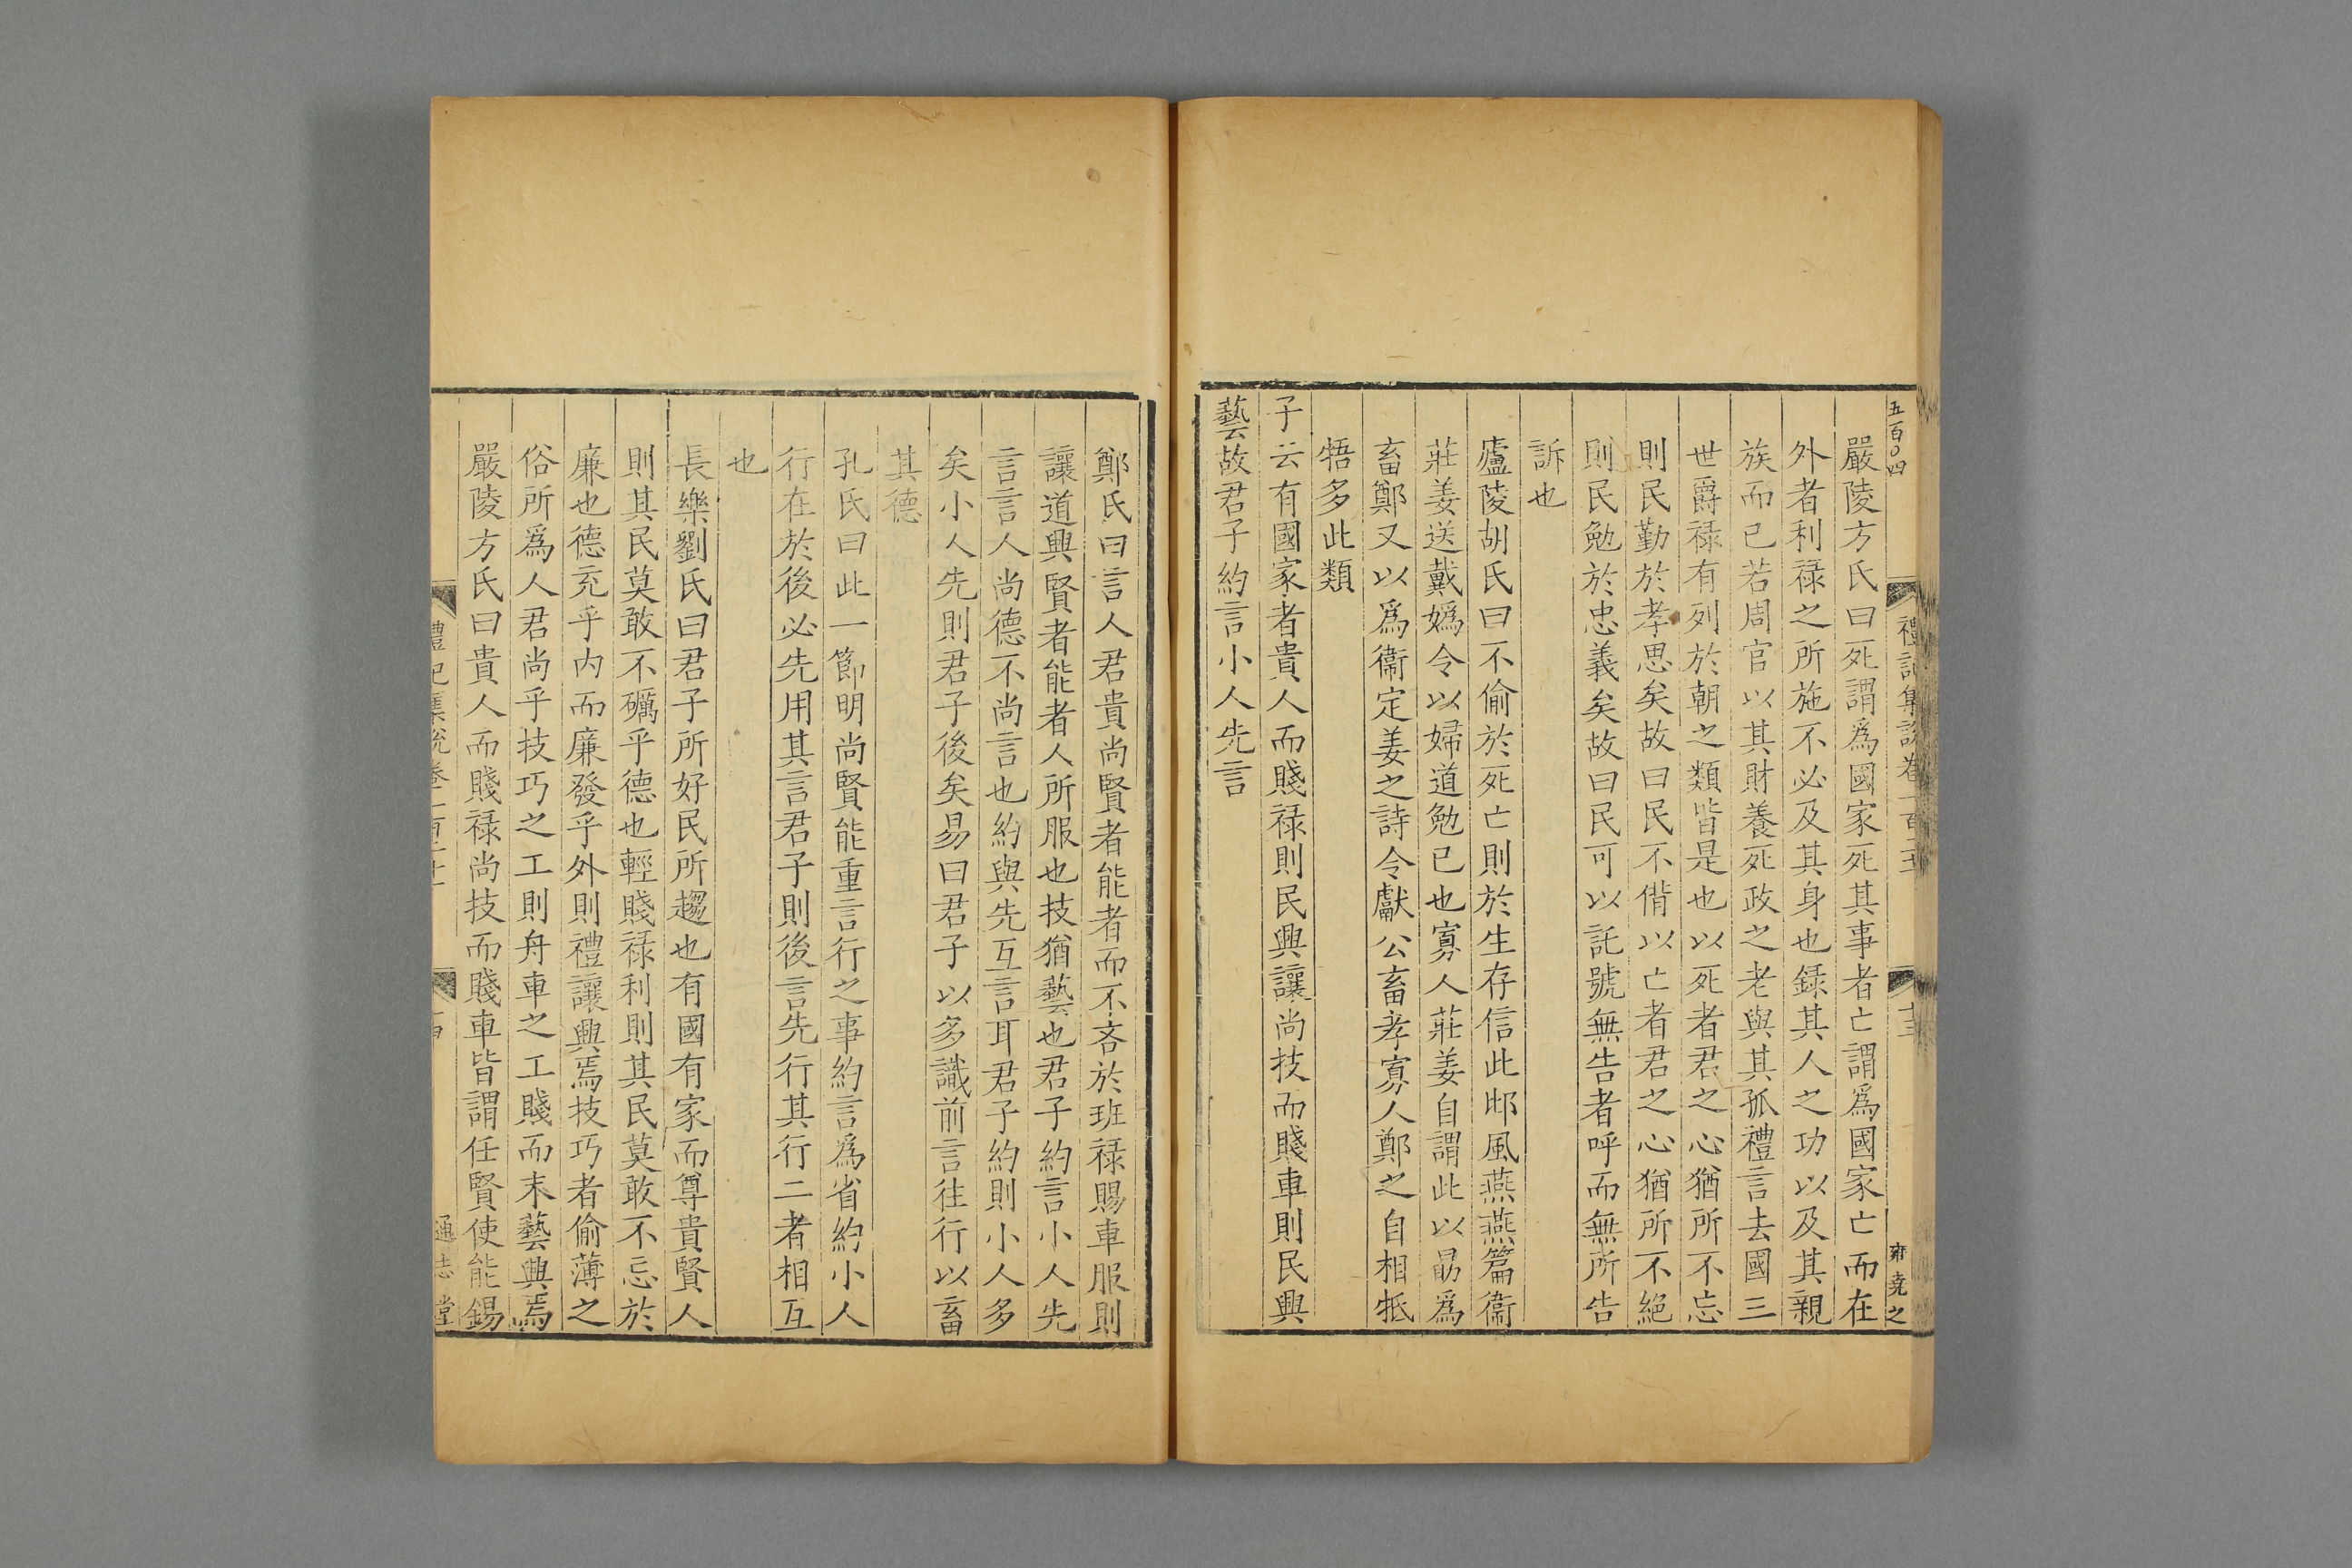 五百〇四
禮記集說卷一百二十
十三
雍堯之
嚴陵方氏曰死謂爲國家死其事者亡謂爲國家亡而在
外者利祿之所施不必及其身也錄其人之功以及其親
族而已若周官以其財養死政之老與其孤禮言去國三
世爵祿有列於朝之類皆是也以死者君之心猶所不忘
則民勤於孝思矣故曰民不偝以亡者君之心猶所不絕
則民勉於忠義矣故曰民可以託號無告者呼而無所告
訴也
廬陵胡氏曰不偷於死亡則於生存信此邶風燕燕篇衞
莊姜送戴嬀令以婦道勉已也寡人莊姜自謂此以勗爲
畜鄭又以爲衞定姜之詩令獻公畜孝寡人鄭之自相牴
牾多此類
子云有國家者貴人而賤祿則民興讓尚技而賤車則民興
藝故君子約言小人先言
鄭氏曰言人君貴尚賢者能者而不吝於班祿賜車服則
讓道興賢者能者人所服也技猶藝也君子約言小人先
言言人尚德不尚言也約與先互言耳君子約則小人多
矣小人先則君子後矣易曰君子以多識前言往行以畜
其德
孔氏曰此一節明尚賢能重言行之事約言爲省約小人
行在於後必先用其言君子則後言先行其行二者相互
也
長樂劉氏曰君子所好民所趨也有國有家而尊貴賢人
則其民莫敢不礪乎德也輕賤祿利則其民莫敢不忘於
廉也德充乎内而廉發乎外則禮讓興焉技巧者偷薄之
俗所爲人君尚乎技巧之工則舟車之工賤而末藝興焉
嚴陵方氏曰貴人而賤祿尚技而賤車皆謂任賢使能錫
禮記集說卷一百二十
十四
通志堂